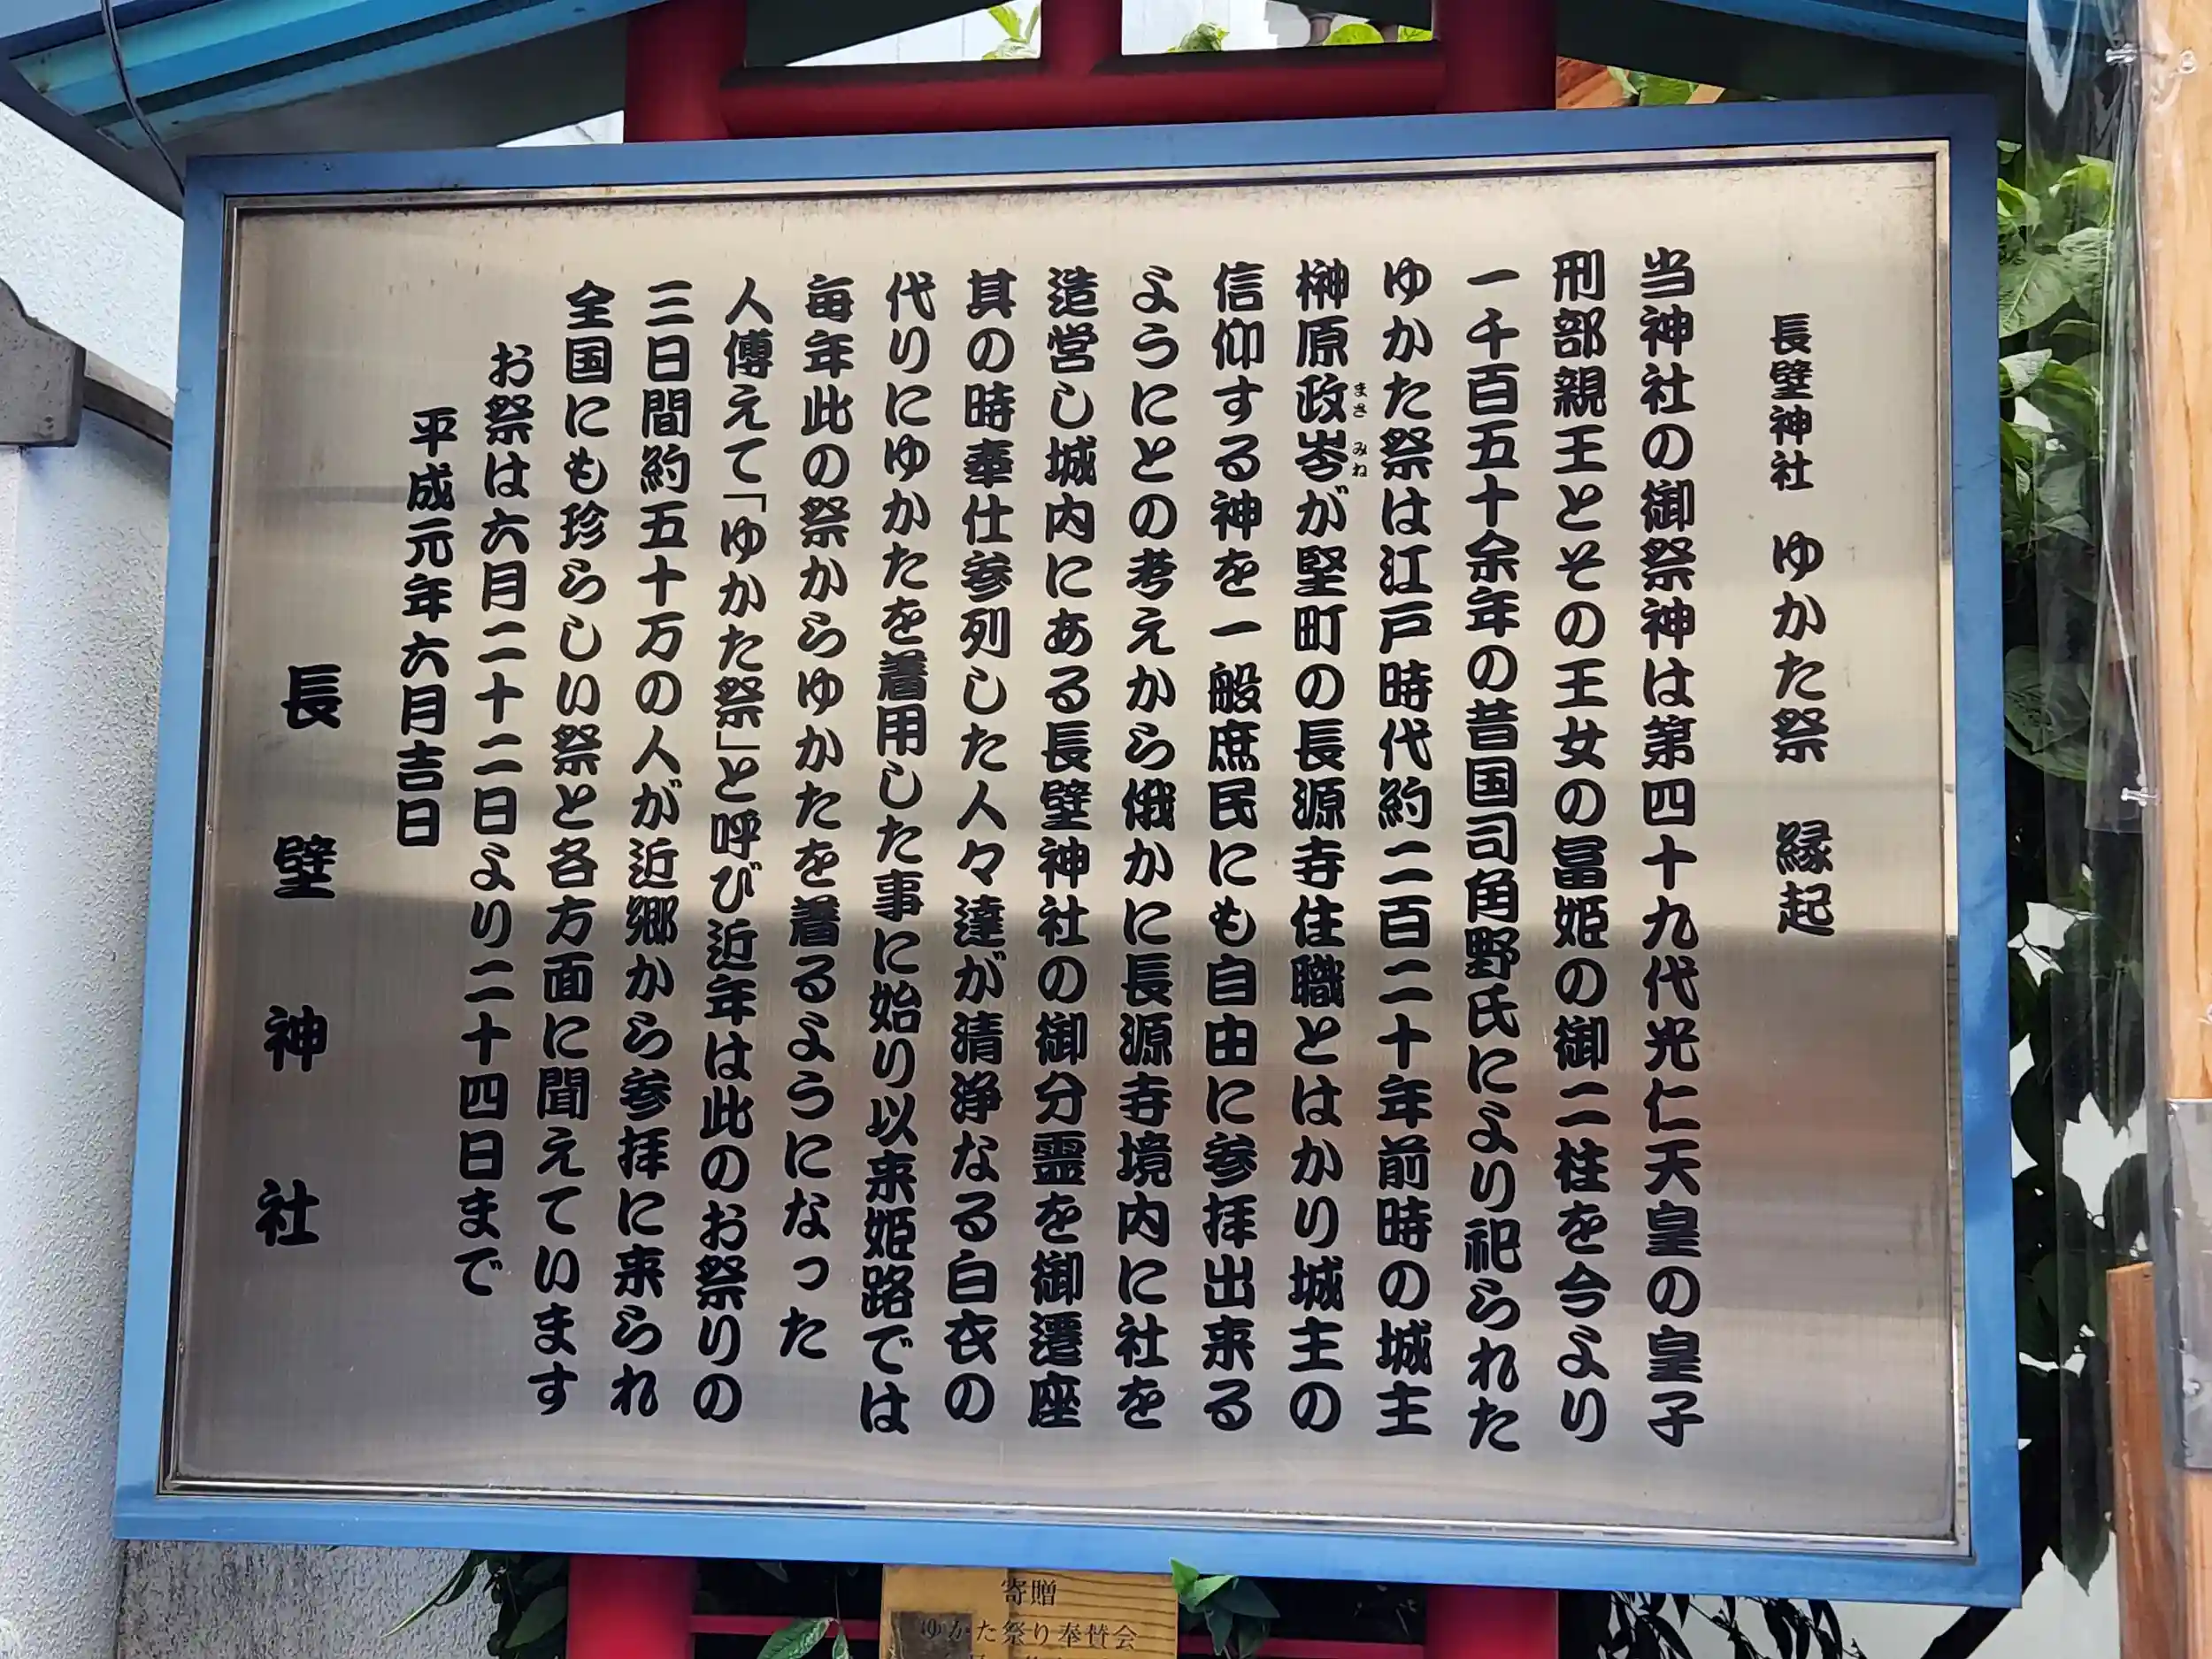 長壁神社　ゆかた祭　縁起
当神社の御祭神は第四十九代光仁天皇の皇子
刑部親王とその王女の冨姫の御二柱を今より
一千百五十余年の昔国司角野氏により祀られた
ゆかた祭は江戸時代約二百二十年前時の城主
榊原政岑が堅町の長源寺住職とはかり城主の
まさ みね
信仰する神を一般庶民にも自由に参拝出来る
ようにとの考えから俄かに長源寺境内に社を
造営し城内にある長壁神社の御分霊を御遷座
其の時奉仕参列した人々達が清浄なる白衣の
代りにゆかたを着用した事に始り以来姫路では
毎年此の祭からゆかたを着るようになった
人傳えて「ゆかた祭」と呼び近年は此のお祭りの
三日間約五十万の人が近郷から参拝に来られ
全国にも珍らしい祭と各方面に聞えています
お祭は六月二十二日より二十四日まで
平成元年六月吉日
長壁神社
寄贈
ゆかた祭り奉賛会